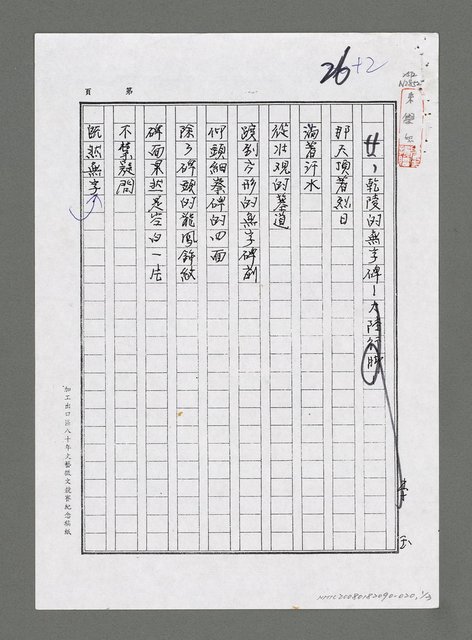 26+2
第 頁
廿、乾陵的無字碑—大陸行腳
李玉
那天頂著烈日
淌著汗水
從壯觀的墓道
踱到方形的無字碑前
仰頭細察碑的四面
除了碑頭的龍鳳飾紋
碑面果然是空白一片
不禁疑問
既然無字
加工出口區八十年文藝徵文競賽紀念稿紙
NMTL20080182090-020, 1/3